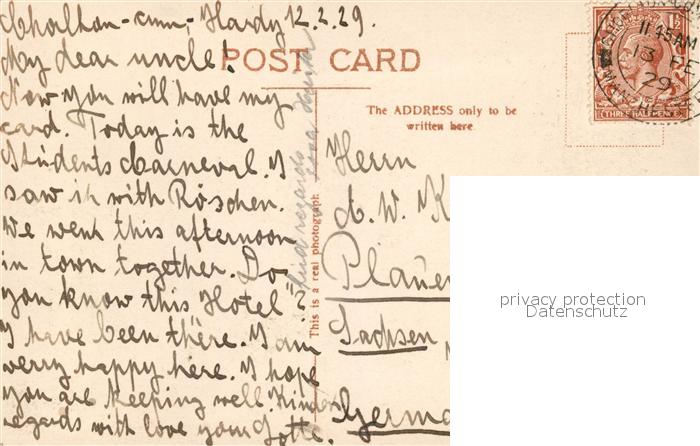 Chorlton-cum-Hardy 12.2.29.
My dear uncle!
Now you will have my
card. Today is the
Students Carneval. I
saw it with Röschen.
We went this afternoon
in town together. Do
you know this "Hotel"?
I have been there. I am
werry happy here. I hope
you are keeping well. Kind
regards with love your Lotte.
Kind regards
This is a real photograph
POST CARD
The ADDRESS only to be
written here
Herrn
A. W. K
Plauen
Sachsen
Germa
1½
THREE HALFPENCE
11.45AM
13 FE
29
privacy protection
Datenschutz